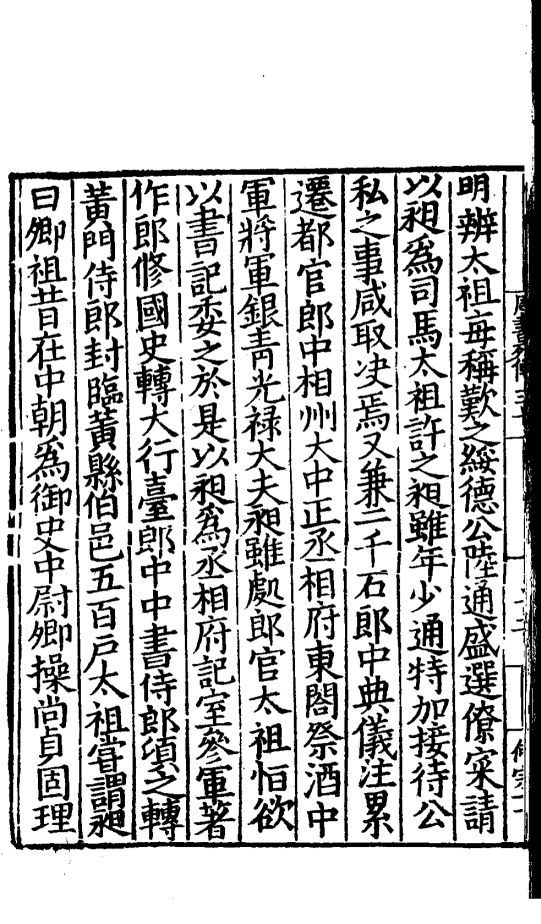 明辨太祖每稱歎之綏德公陸通盛選僚寀請
以昶爲司馬太祖許之昶雖年少通特加接待公
私之事咸取决焉又兼二千石郎中典儀注累
遷都官郎中相州大中正丞相府東閤祭酒中
軍將軍銀青光禄大夫昶雖處郎官太祖恒欲
以書記委之於是以昶爲丞相府記室參軍著
作郎修國史轉大行臺郎中中書侍郎頃之轉
黄門侍郎封臨黄縣伯邑五百戸太祖嘗謂昶
曰卿祖昔在中朝爲御史中尉卿操尚貞固理